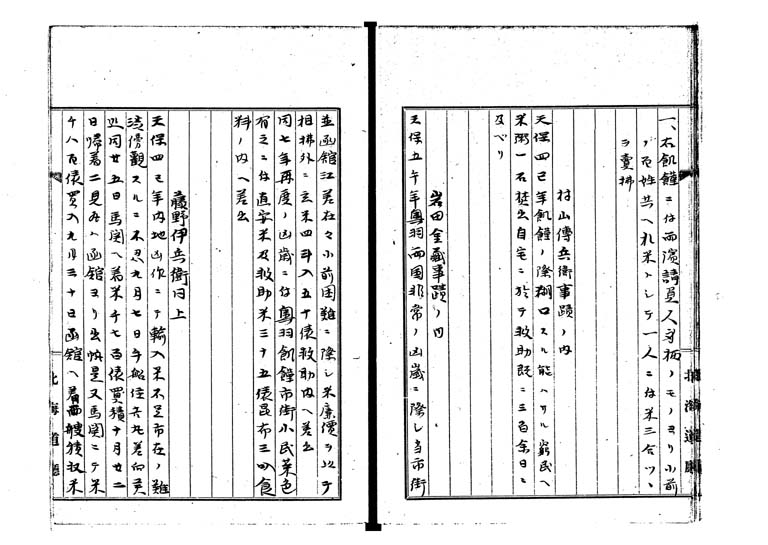 一、右飢饉ニ付両濱請負人身柄ノモノヨリ小前
ノ百姓共ヘ札米トシテ一人ニ付米三合ツヽ
ヲ賣拂
村山傳兵衛事蹟ノ内
天保四巳年飢饉ノ際糊口スル能ハサル窮民ヘ
米粥一石焚出自宅ニ於テ救助既ニ三百余日ニ
及ベリ
岩田金蔵事蹟ノ内
天保五午年奥羽両国非常ノ凶歳ニ際し当市街
並函館江差在々小前困難ニ際シ米廉價ヲ以テ
相拂外ニ玄米四斗入五十俵救助内ヘ差出
同七年再度ノ凶歳ニ付奥羽飢饉市街小民菜色
有之ニ付直安米及救助米三十五俵昆布三 食
料ノ内ヘ差出
藤野伊兵衛同上
天保四巳年内地凶作ニテ輸入米不足市在ノ難
渋傍観スルニ不忍九月七日手船住吉丸差向
同廿五日馬関ヘ着米千七百俵買積十月廿二
日帰着二見丸ハ函館ヨリ出帆是又馬関ニテ米
千八百俵買入九月三十日函館ヘ着両艘積取米
北海道廳